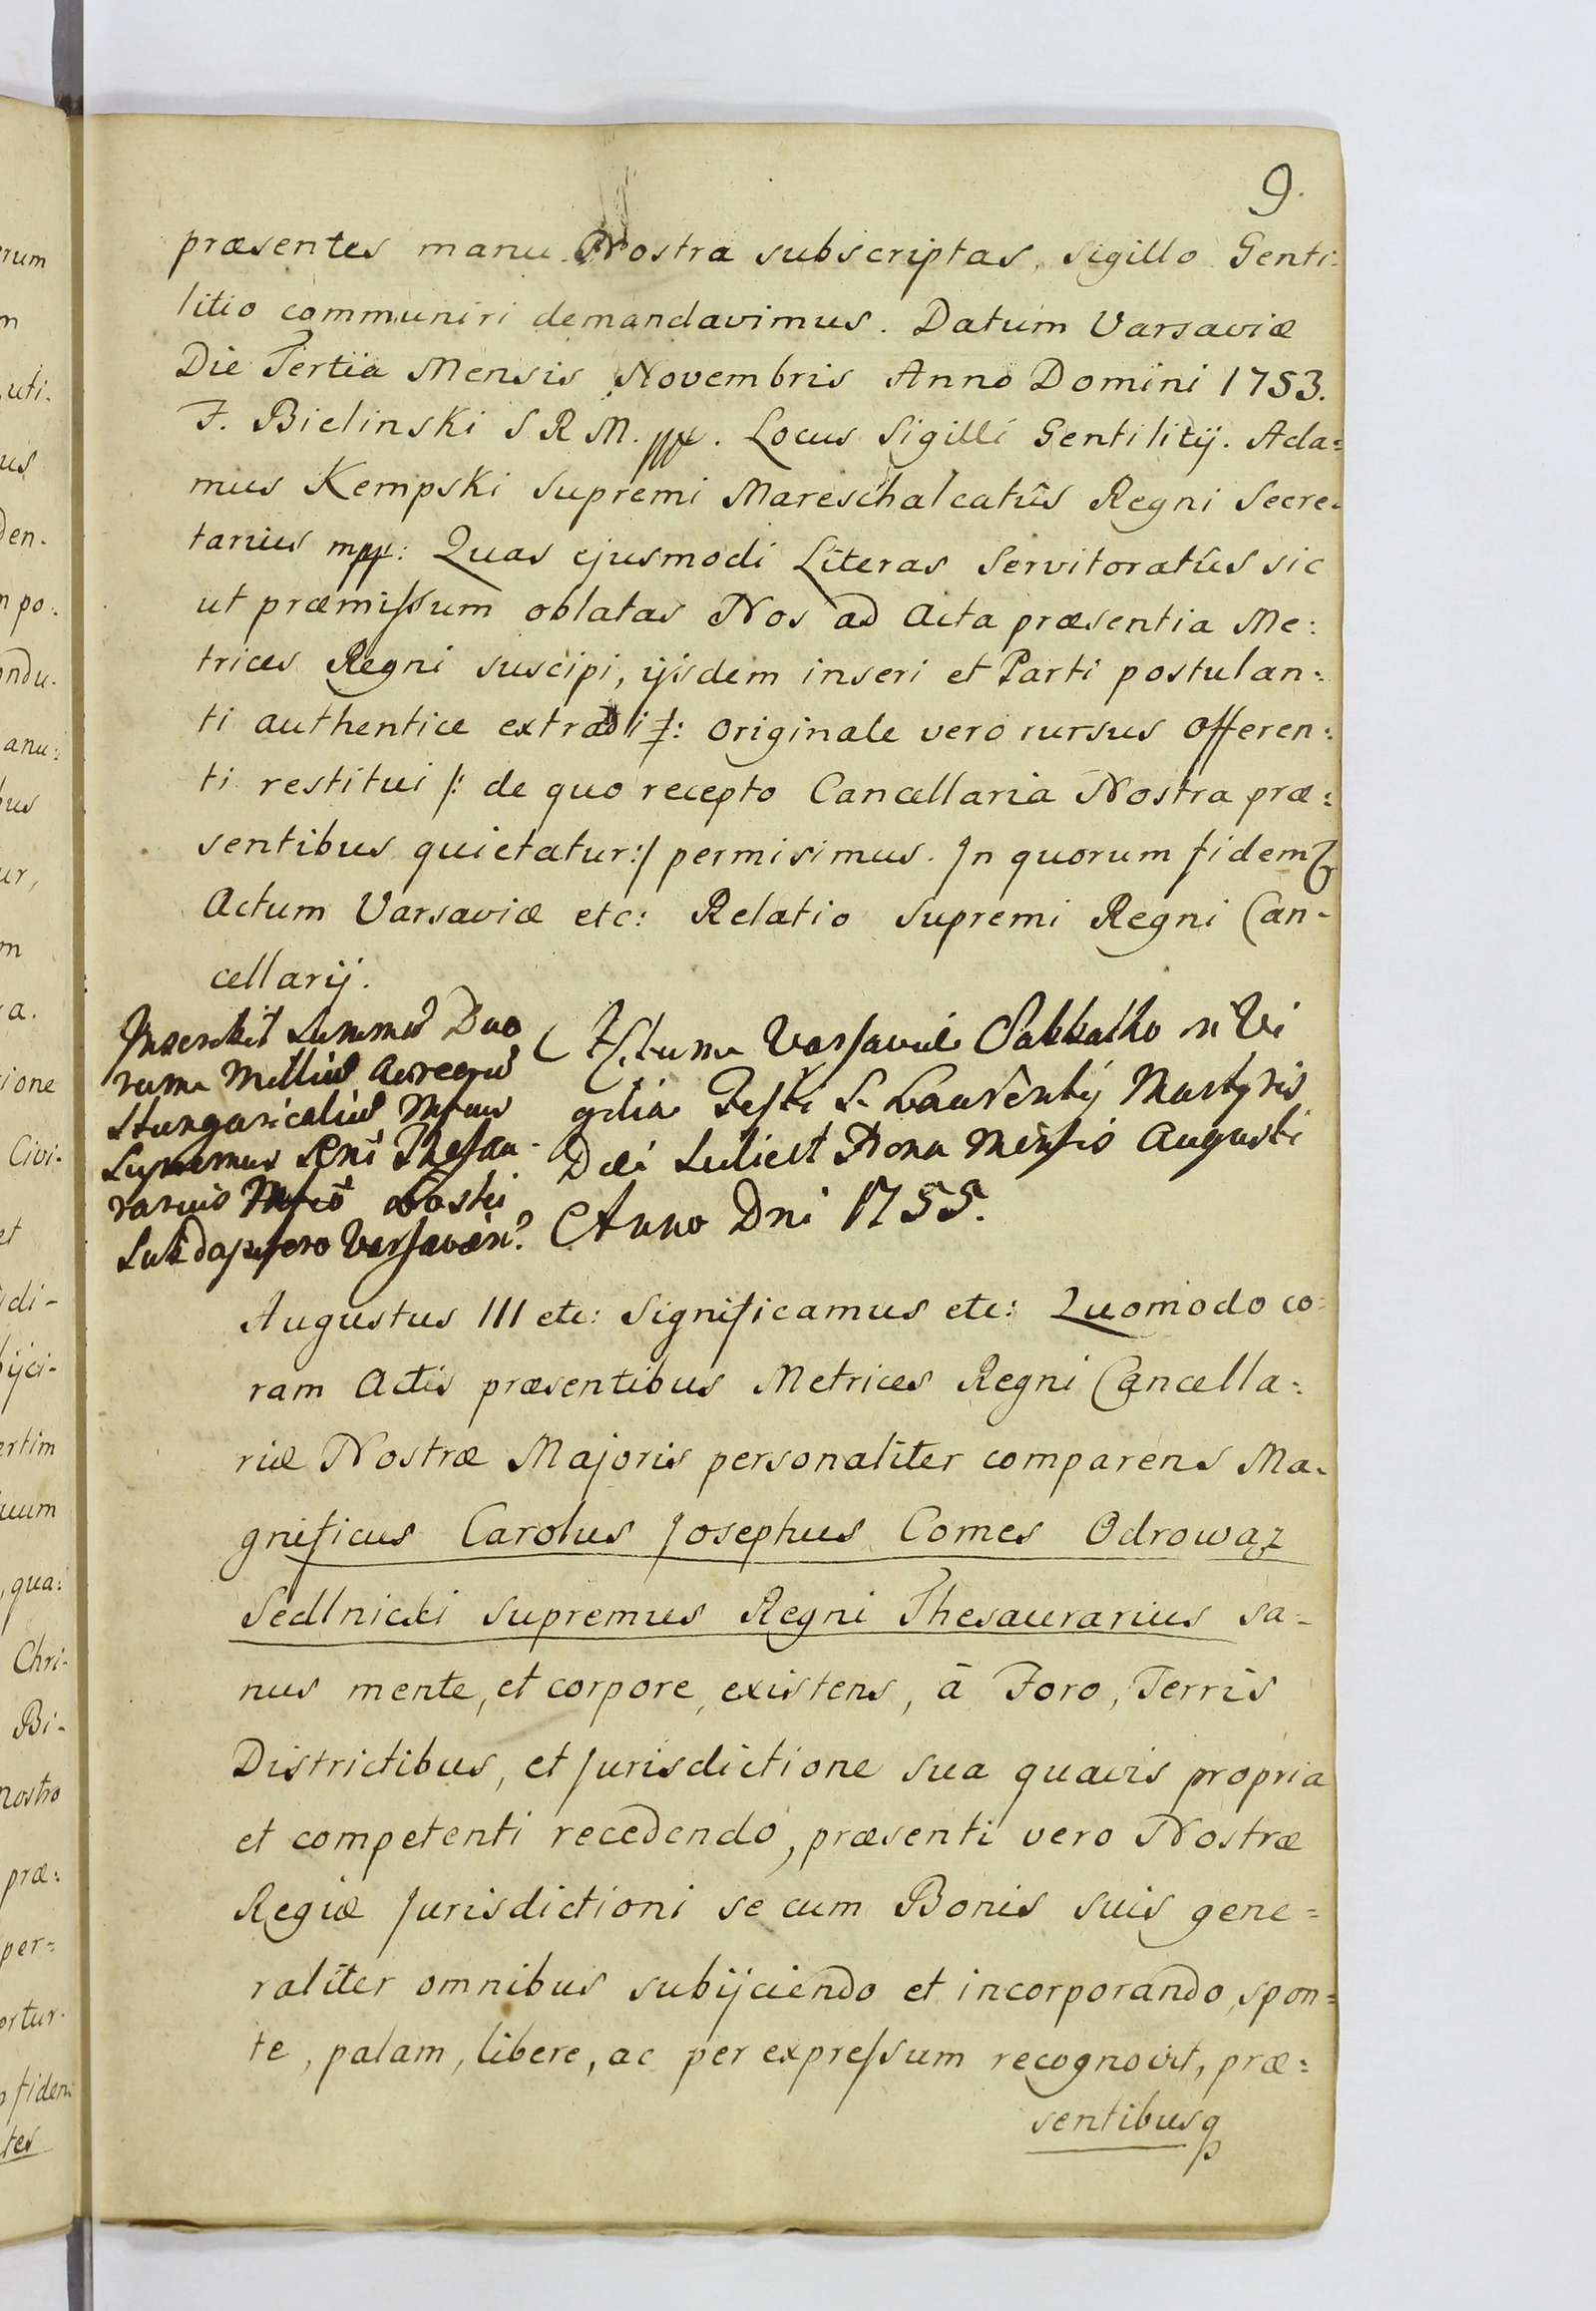 9.
præsentes manu Nostra subscriptas, Sigillo Genti:
litio communiri demandavimus. Datum Varsaviæ
Die Tertia Mensis Novembris Anno Domini 1753.
F. Bielinski S R M. mpp. Locus Sigilli Gentilitij. Ada=
mus Kempski Supremi Mareschalcatûs Regni Secre=
tarius mpp: Quas ejusmodi Literas Servitoratus sic
ut præmissum oblatas Nos ad Acta præsentia Me:
trices Regni suscipi, ijsdem inseri et Parti postulan:
ti authentice extradi /: Originale vero rursus Offeren:
ti restitui /: de quo recepto Cancellaria Nostra præ:
sentibus quietatur:/ permisimus. In quorum fidem
Actum Varsaviæ etc: Relatio Supremi Regni Can-
cellarij.
Inscribit Summã Duo
rum Milliũ Aureorũ
Hungaricaliũ
Supremus Rñi Thesau-
rarius Mfco Łoski
Subdapifero Varsavien?
Actum Varsaviæ Sabbatho in Vi
gilia Festi S. Laurentij Martyris
Die Scilicet Nona Mensis Augusti
Anno Dni 1755.
Augustus III etc: Significamus etc: Quomodo co=
ram Actis præsentibus Metrices Regni Cancella:
riæ Nostræ Majoris personaliter comparens Ma-
gnificus Carolus Josephus Comes Odrowąz
Sedlnicki Supremus Regni Thesaurarius sa=
nus mente, et corpore, existens, à Foro, Terris
Districtibus, et Jurisdictione sua quavis propria
et competenti recedendo, præsenti vero Nostræ
Regiæ Jurisdictioni se cum Bonis suis gene=
raliter omnibus subijciendo et incorporando, spon=
te, palam, libere, ac per expressum recognovit, præ:
sentibusq